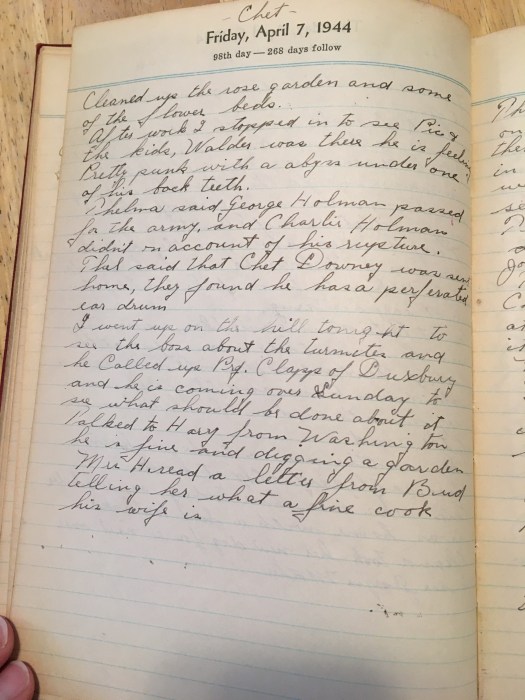 - Chet -
Friday, April 7, 1944
98th day — 268 days follow
Cleaned up the rose garden and some
of the flower beds.
After work I stopped in to see Pic &
the kids, Walder was there he is feelin
Pretty punk with a abyss under one
of his back teeth.
Thelma said George Holman passed
for the army, and Charlie Holman
didn't on account of his rupture.
Thel said that Chet Downey was sent
home, they found he has a perferated
ear drum
I went up on the hill tonight to
see the boss about the turmites and
he Called up Clapp of Duxbury
and he is coming over Sunday to
see what should be done about it
Talked to Hary from Washington
he is fine and digging a garden
Mrs H. read a letter from Bud
telling her what a fine cook
his wife is